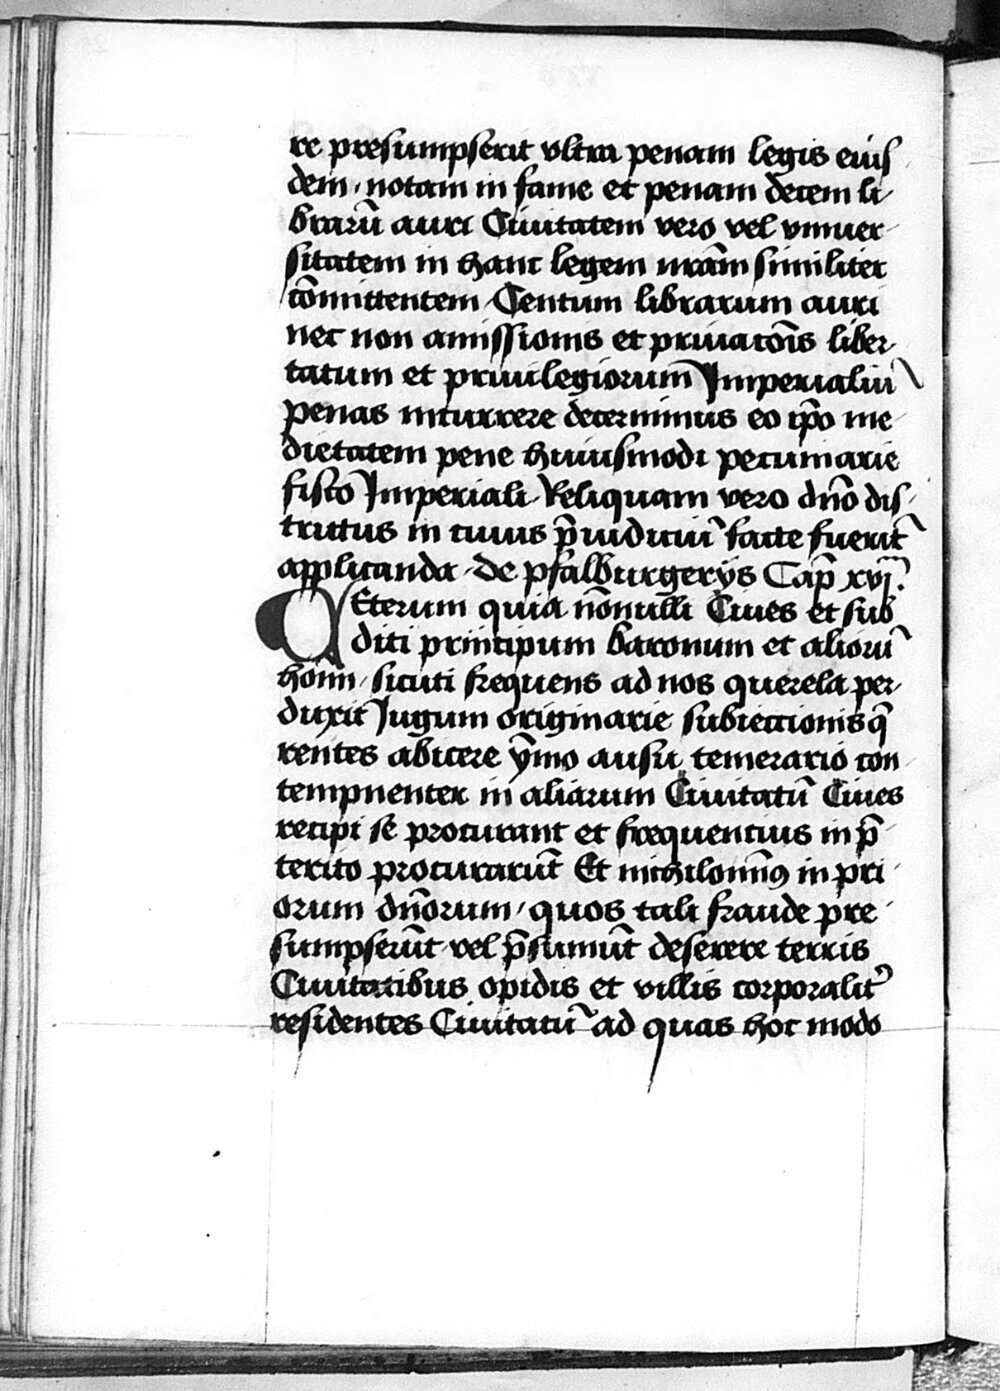 re presumpserit vltra penam legis eius
dem, notam in fame et penam decem li
brarū auri Ciuitatem vero vel vniuer
sitatem in hanc legem nrām similiter
cōmittentem, Centum librarum auri
nec non amissionis et priuatōis liber
tatum et priuilegiorum Imperialiū
penas incurrere decernimus eo ip̄o me
dietatem pene huiusmodi pecuniarie
fisco Imperiali, Reliquam vero dn̄o dis
trictus in cuius p̄iudiciū facte fuerīt
applicanda, de pfalburgerijs Cap̄ xvj.
CEterum quia nōnulli Ciues et sub
diti principum baronum et aliorū
hoīm, sicuti frequens ad nos querela per
duxit Jugum originarie subiectionis q̄
rentes abicere ȳmo ausu temerario con
tempnenter in aliarum Ciuitatū Ciues
recipi se procurant et frequencius in p̄
terito procurarūt Et nichilomīꝯ in pri
orum dn̄orum, quos tali fraude pre
sumpserūt vel p̄sumūt deserere terris
Ciuitatibus opidis et villis corporalit᷑
residentes Ciuitatū ad quas hoc modo